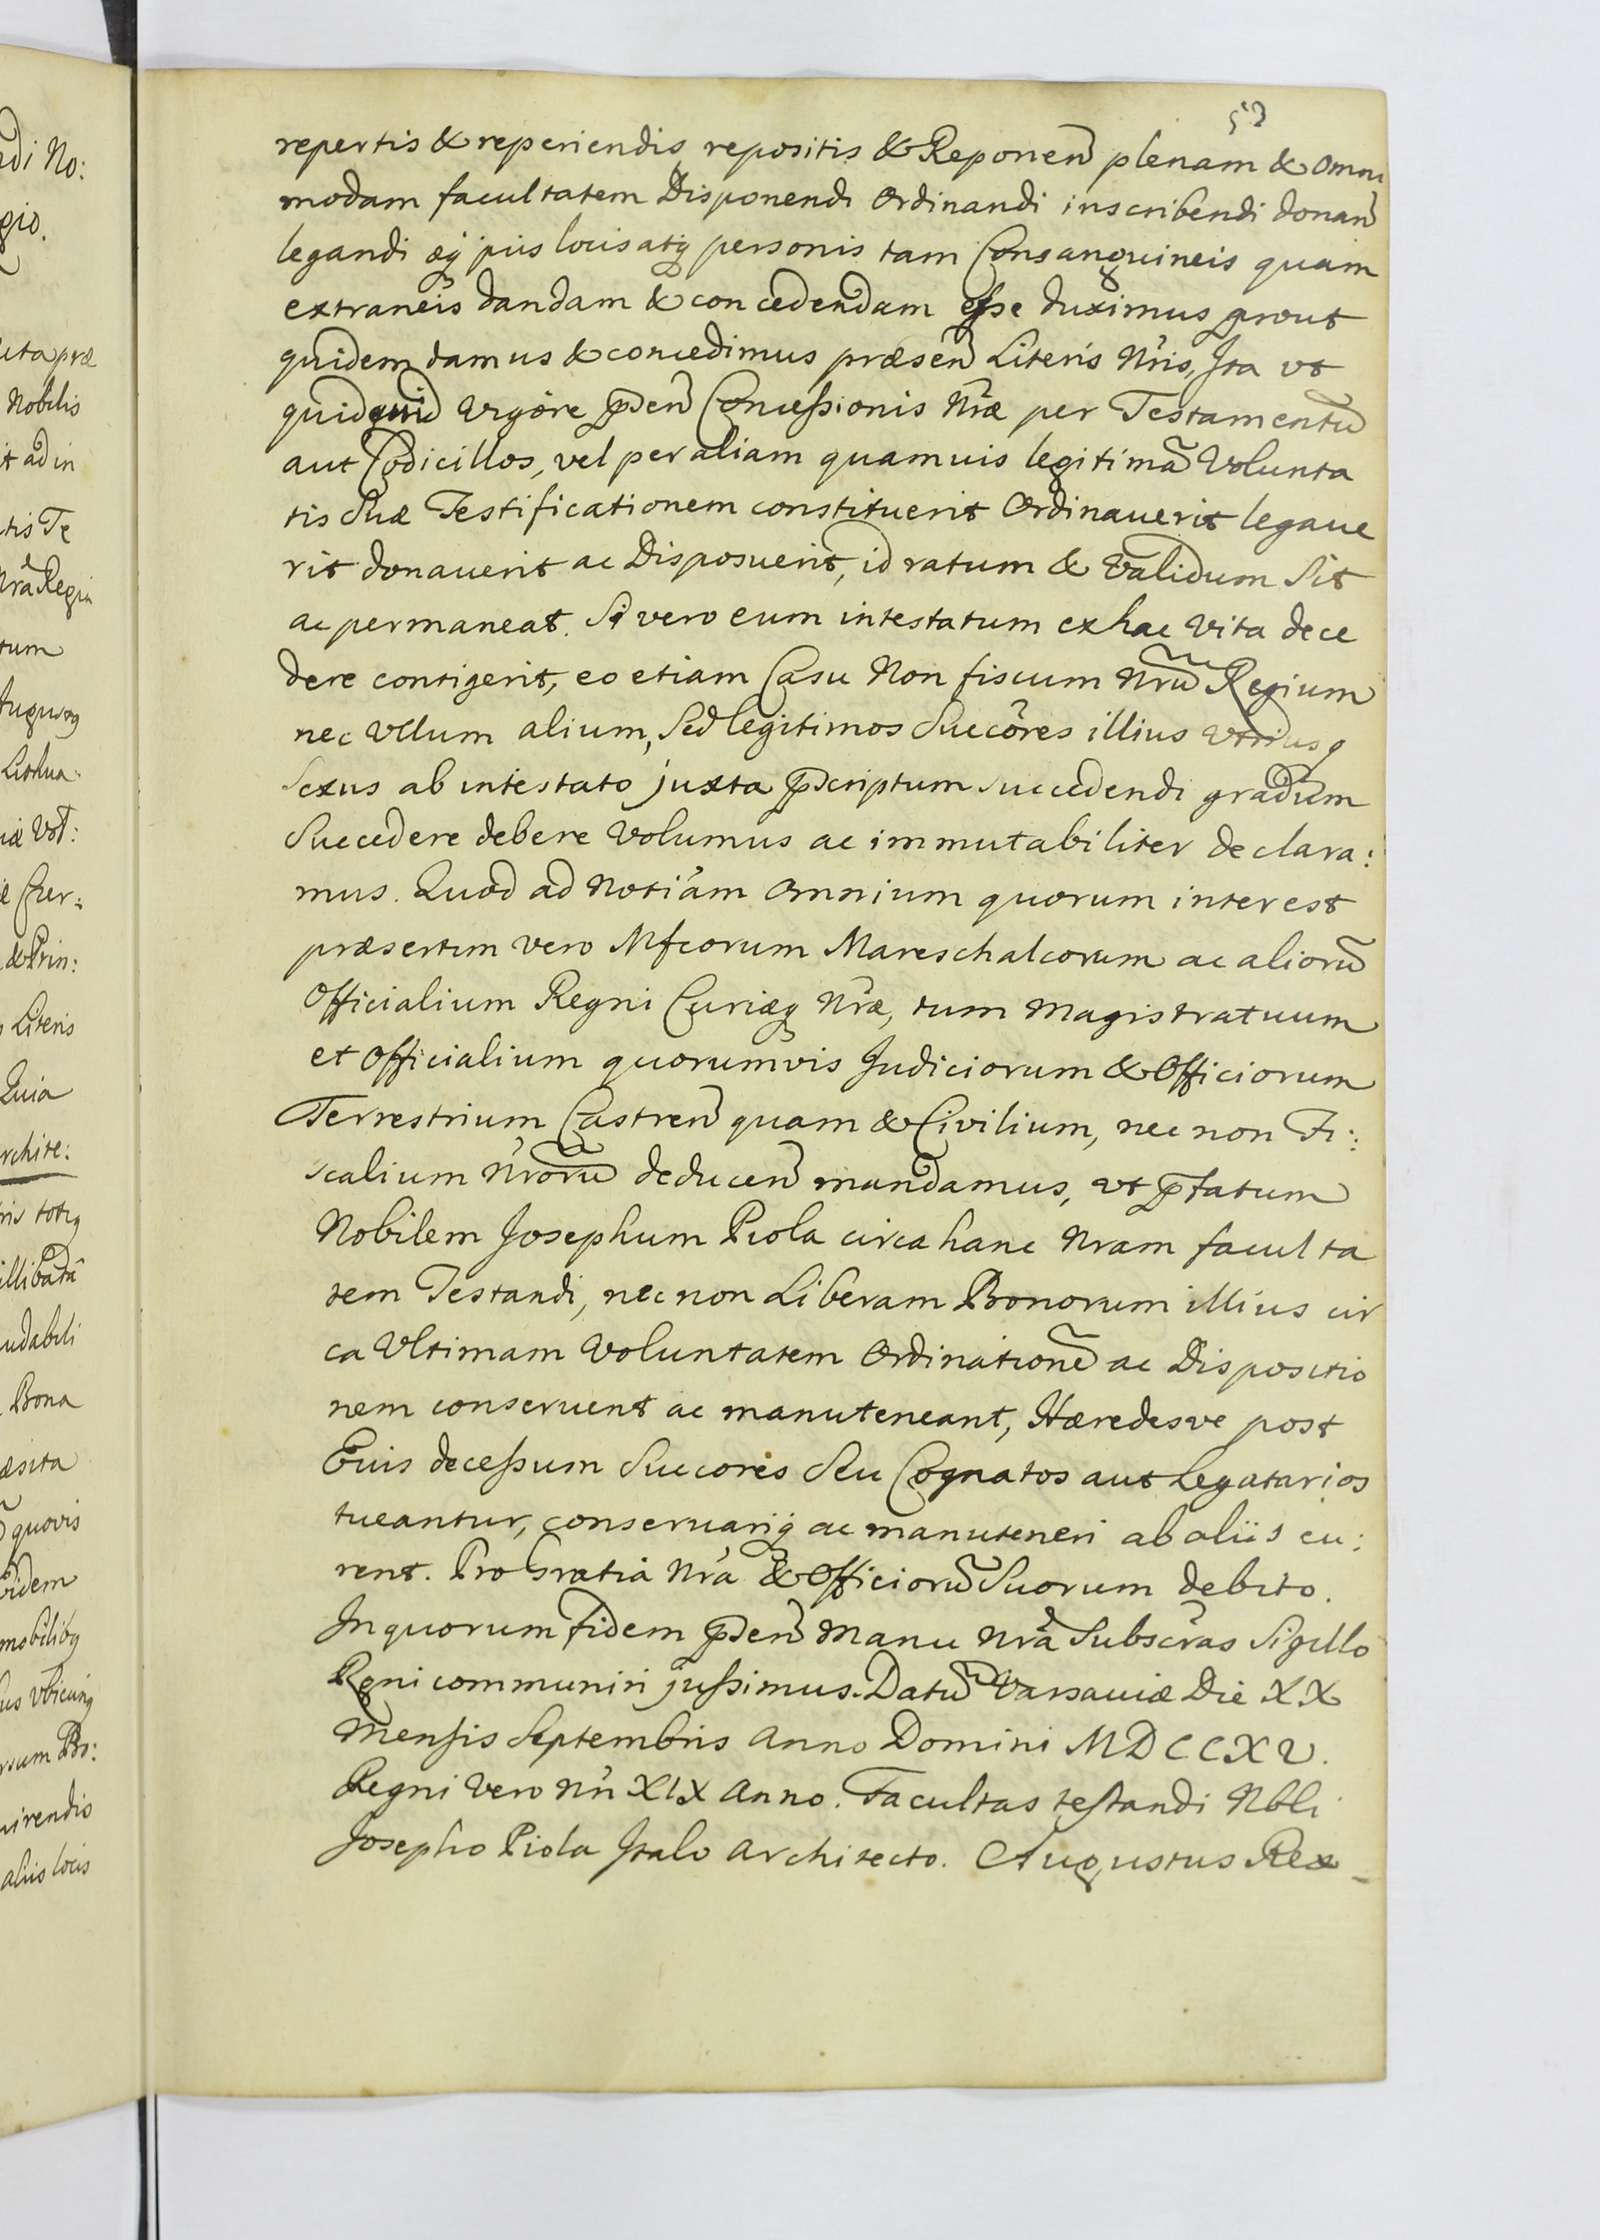 53
repertis & reperiendis repositis & Reponen plenam & Omni
modam facultatem Disponendi Ordinandi inscribendi donan
legandi eq piis locis atq personis tam Consanguineis quam
extraneis dandam & concedendam esse duximus prout
quidem damus & concedimus præsen Literis Nris, Ita vt
quidquid Vigore pden Concessionis Nræ per Testamentu
aut Codicillos, vel per aliam quamuis legitimã Volunta
tis Suæ Testificationem constituerit Ordinauerit legaue
rit donauerit ac Disposuerit, id ratum & Validum Sit
ac permaneat. Si vero eum intestatum ex hac Vita dece
dere contigerit, eo etiam Casu Non fiscum Nru Regium
nec Vllum alium, Sed legitimos Succôres illius Vtriusq
Sexus ab intestato juxta pscriptum succedendi gradum
Succedere debere Volumus ac immutabiliter declara:
mus. Quod ad Notiam Omnium quorum interest
præsertim vero Mfcorum Mareschalcorum ac alioru
Officialium Regni Curiæq Nræ, tum Magistratuum
et Officialium quorumvis Judiciorum & Officiorum
Terrestrium Castren quam & Civilium, nec non Fi:
scalium Nroru deducen mandamus, vt pfatum
Nobilem Josephum Piola circa hanc Nram faculta
tem Testandi, nec non Liberam Bonorum illius cir
ca Vltimam Voluntatem Ordinatione ac Dispositio
nem conseruent ac manuteneant, Hæredesve post
Eius decessum Succores Seu Cognatos aut Legatarios
tueantur, conseruariq ac manuteneri ab aliis cu:
rent. Pro Gratia Nra & Officioru Suorum debito.
In quorum fidem pden Manu Nra Subscras Sigillo
Rgni communiri jussimus. Datu Varsauiæ Die XX
Mensis Septembris Anno Domini MDCCXV.
Regni Vero Nri XIX Anno. Facultas testandi Nbli
Josepho Piola Italo Architecto. Augustus Rex